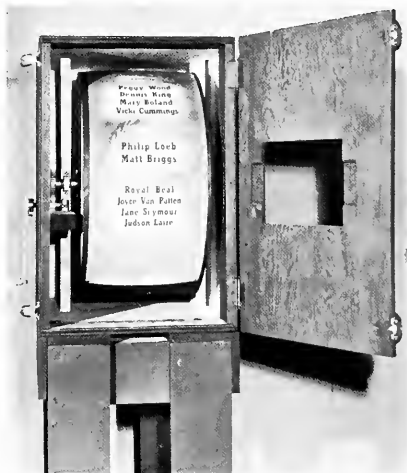 Peggy Wood
Dennis King
Mary Boland
Vicki Cummings
Philip Loeb
Matt Briggs
Royal Beal
Joyce Van Patten
Jane Seymour
Judson Laire